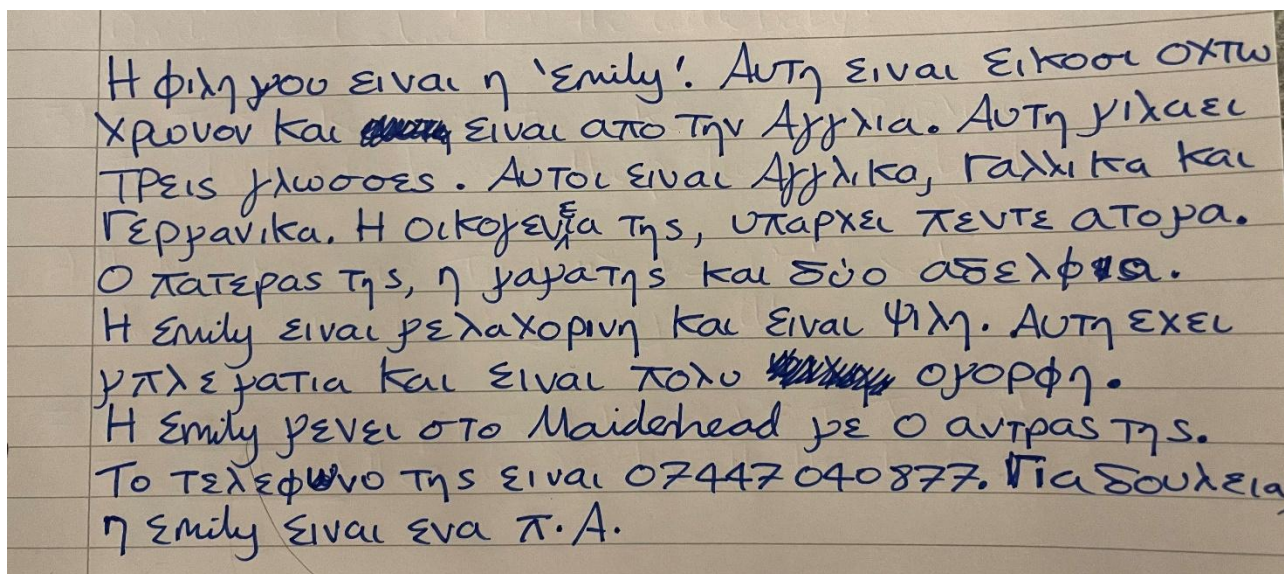 Η φιλη μου ειναι η 'Emily'. Αυτη ειναι εικοσι οχτω
χρωνον και ειναι απο την Αγγλια. Αυτη μιλαει
τρεις γλωσσες. Αυτοι ειναι Αγγλικα, Γαλλικα και
Γερμανικα. Η οικογενεια της, υπαρχει πεντε ατομα.
Ο πατερας της, η μαματης και δύο αδελφια.
Η Emily ειναι μελαχορινη και ειναι ψιλη. Αυτη εχει
μπλε ματια και ειναι πολυ ομορφη.
Η Emily μενει στο Maidenhead με ο αντρας της.
Το τελεφωνο της ειναι 07447040877. Για δουλεια,
η Emily ειναι ενα π.Α.